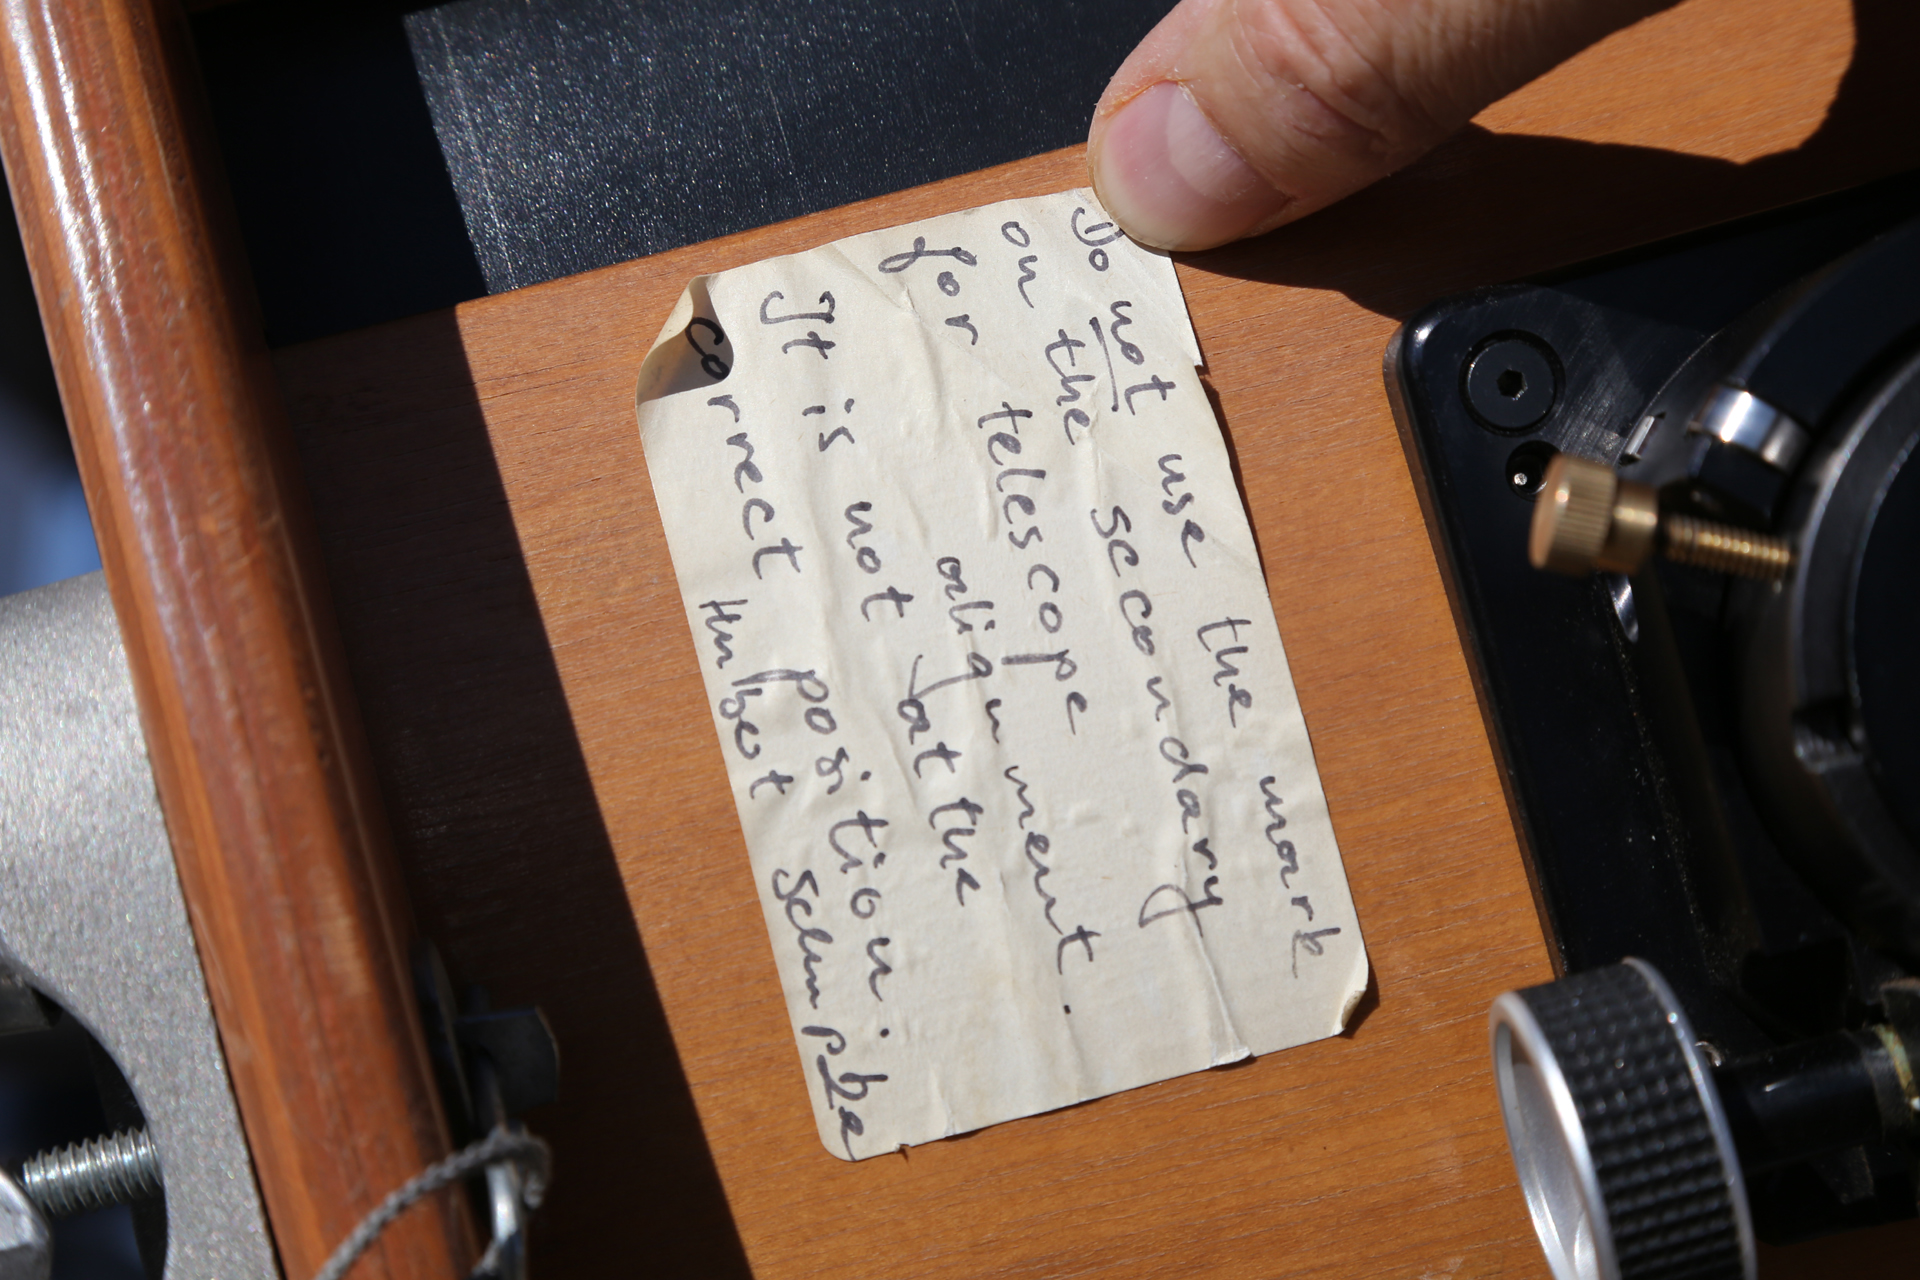 Do not use the mark
on the secondary
for telescope
alignment.
It is not at the
correct position.